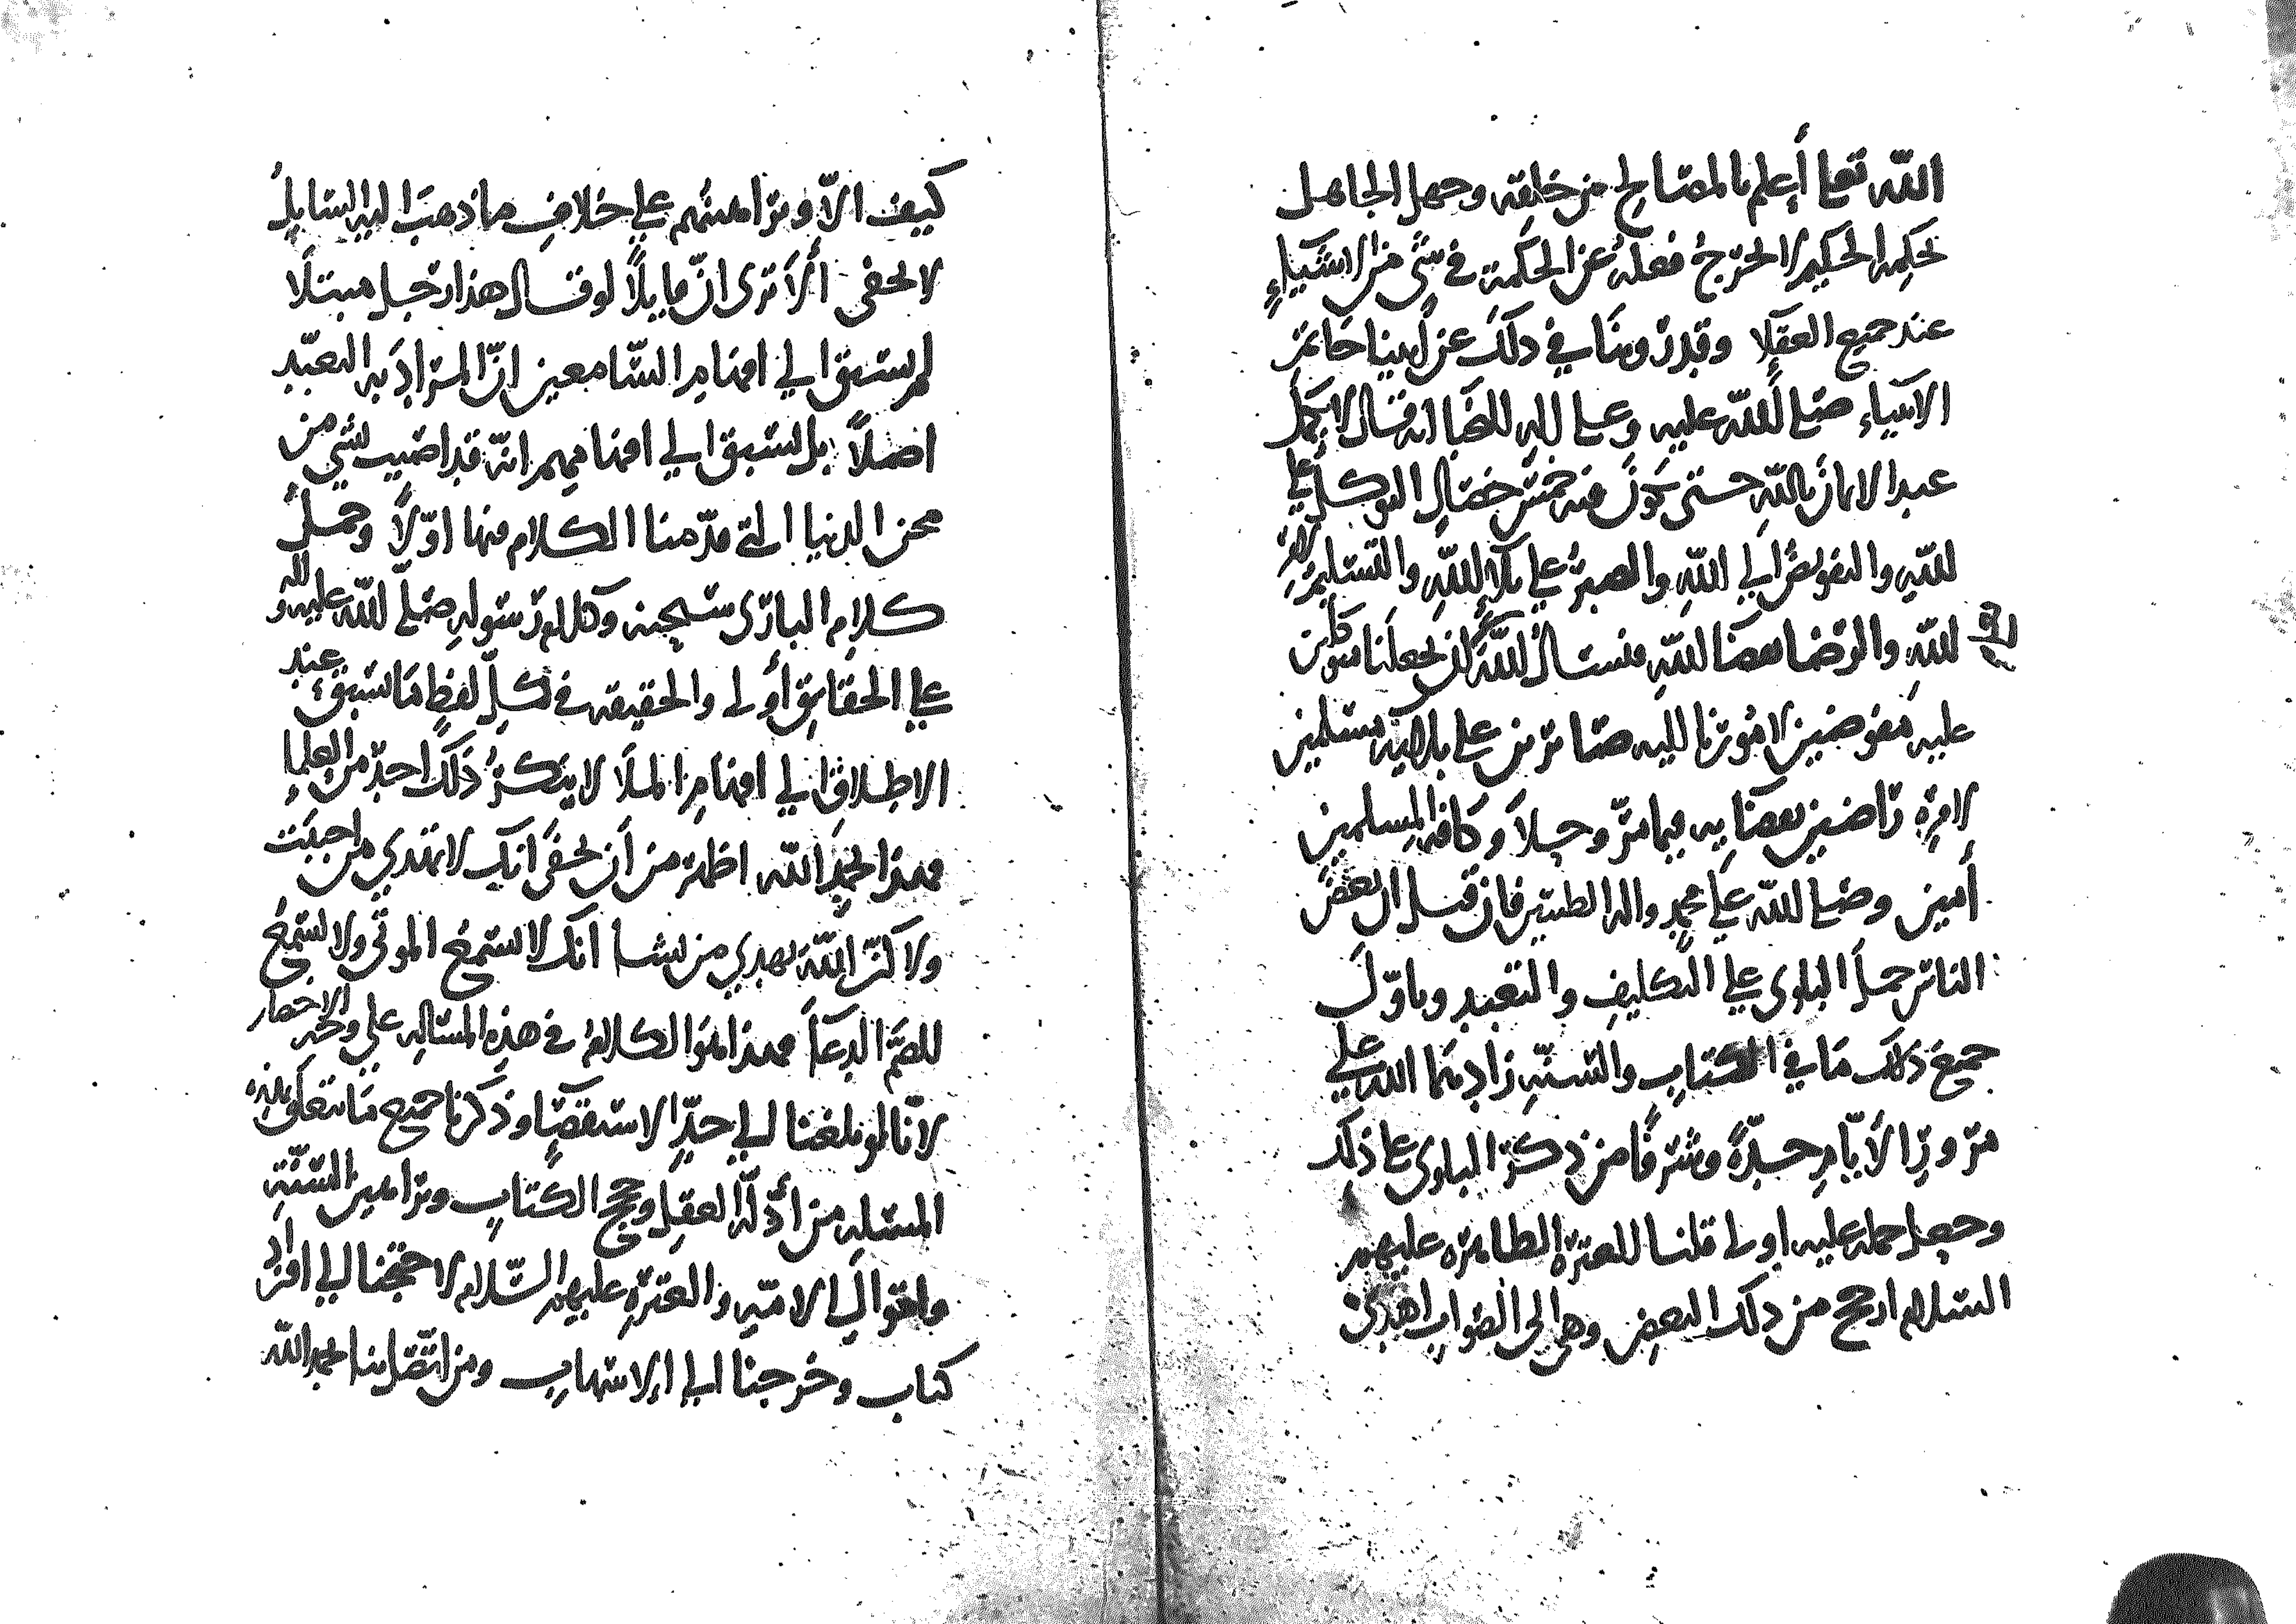 الله تعالى أعلم بالمصالح من خلقه وجهل الجاهل
بحكمة الحكيم لا تخرج فعله عن الحكمة في شي من الاشياء
عند جميع العقلاء وقد روينا في ذلك عن نبينا خاتم
الانبياء صلى الله عليه وعلى اله النجبا انه قال لا يكمل
عبد الايمان بالله حتى يكون فيه خمس خصال التوكل على
الله والتفويض الى الله والصبر على بلاء الله والتسليم لامر
الله والرضا بقضا الله فنسال الله ان يجعلنا متوكلين
عليه مفوضين لامورنا اليه صابرين على بلائه مسلمين
لامره راضين بقضائه فيما مر وحلا وكافة المسلمين
أمين وصلى الله على محمد واله الطيبين فان قيل ان بعض
الناس حمل البلوى على التكليف والتعبد وتاول
جميع ذلك ما في الكتاب والسنه زادهما الله على
مرور الأيام جدة وشرفا من ذكر البلوى على ذلك
وجعل حمله عليه اولى قلنا للعترة الطاهره عليهم
السلام ارجح من ذلك البعض وهي الى الصواب اهدى
كيف الا وبراهينهم على خلاف ما ذهب اليه السايل
لا تخفى ألا ترى ان قايلا لو قال هذا رجل مبتلا
لم يستبق الى افهام السامعين ان المراد به التعبد
اصلا بل يستبق الى افهامهم انه قد اصيب بشي من
محن الدنيا التي قدمنا الكلام فيها اولا وحمل
كلام الباري سبحنه وكلام رسوله صلى الله عليه واله
على الحقايق أولى والحقيقه في كل لفظ ما سبق عند
الاطلاق الى افهام الملا لا ينكر ذلك احد من العلماء
فهذا بحمد الله اظهر من أن يخفى انك لا تهدي من احببت
ولاكن الله يهدي من يشا انك لا تسمع الموتى ولا تسمع
الصم الدعا فهذا هو الكلام في هذه المساله على وجه الاختصار
لانا لو بلغنا الى حد الاستقصاء وذكرنا جميع ما يتعلق بهذه
المسئله من أدلة العقل وحجج الكتاب وبراهين السنة
واقوال الامه والعترة عليهم السلام لاحتجنا الى افراد
كتاب وخرجنا الى الاسهاب ومن اتصل بنا بحمد الله